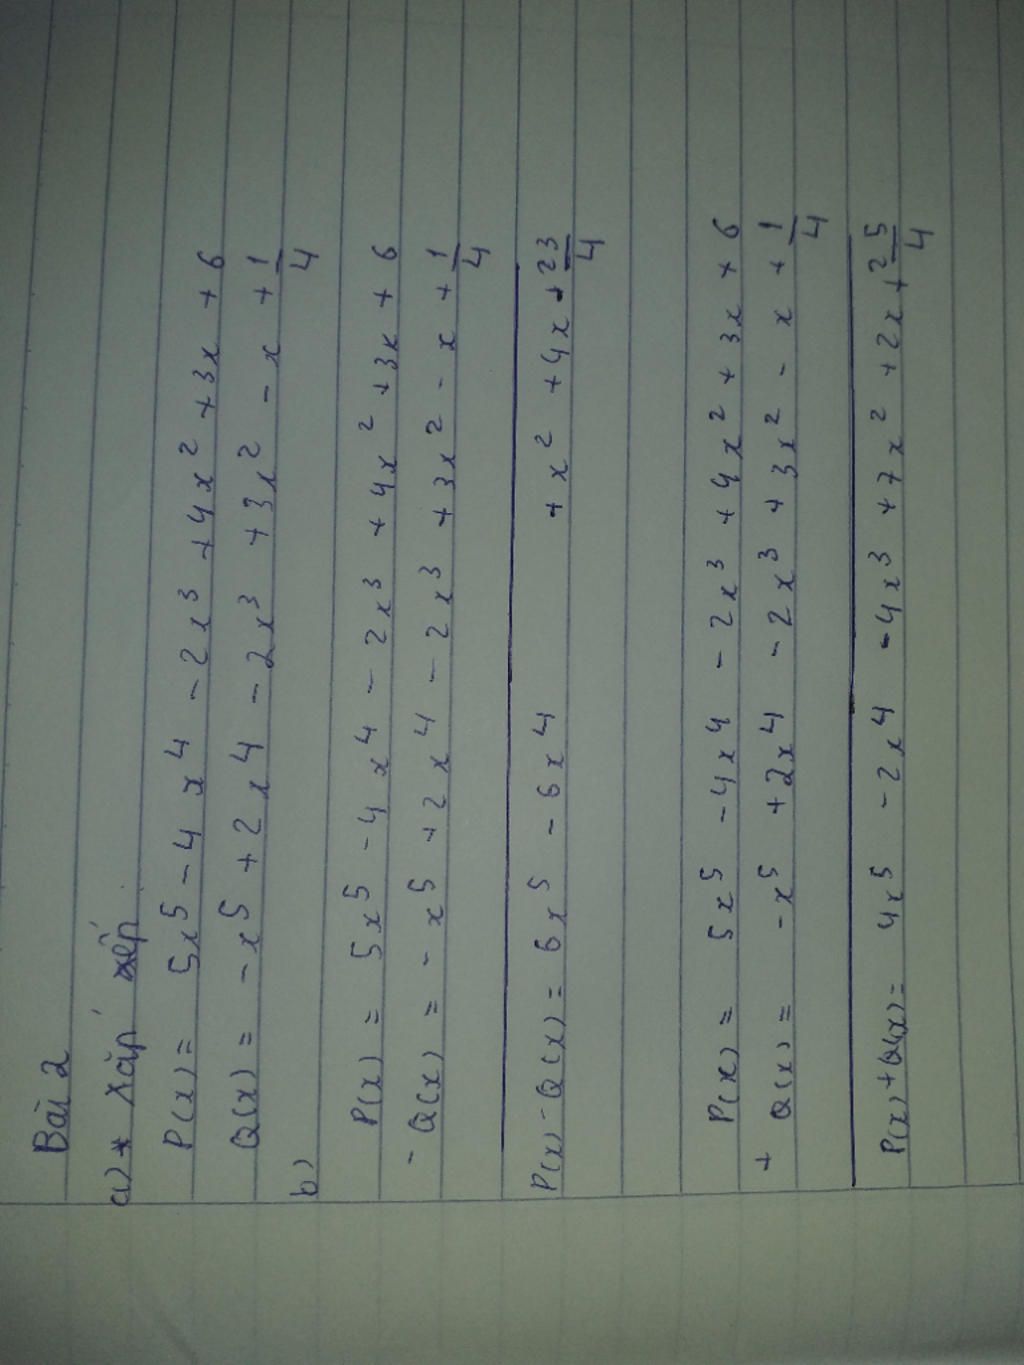 Bài 2
a) * Xắp xếp
P(x) = 5x⁵ - 4x⁴ - 2x³ + 4x² + 3x + 6
Q(x) = -x⁵ + 2x⁴ - 2x³ + 3x² - x + 1/4
b)
P(x) = 5x⁵ - 4x⁴ - 2x³ + 4x² + 3x + 6
- Q(x) = -x⁵ + 2x⁴ - 2x³ + 3x² - x + 1/4
P(x) - Q(x) = 6x⁵ - 6x⁴ + x² + 4x + 23/4
P(x) = 5x⁵ - 4x⁴ - 2x³ + 4x² + 3x + 6
+ Q(x) = -x⁵ + 2x⁴ - 2x³ + 3x² - x + 1/4
P(x) + Q(x) = 4x⁵ - 2x⁴ - 4x³ + 7x² + 2x + 25/4